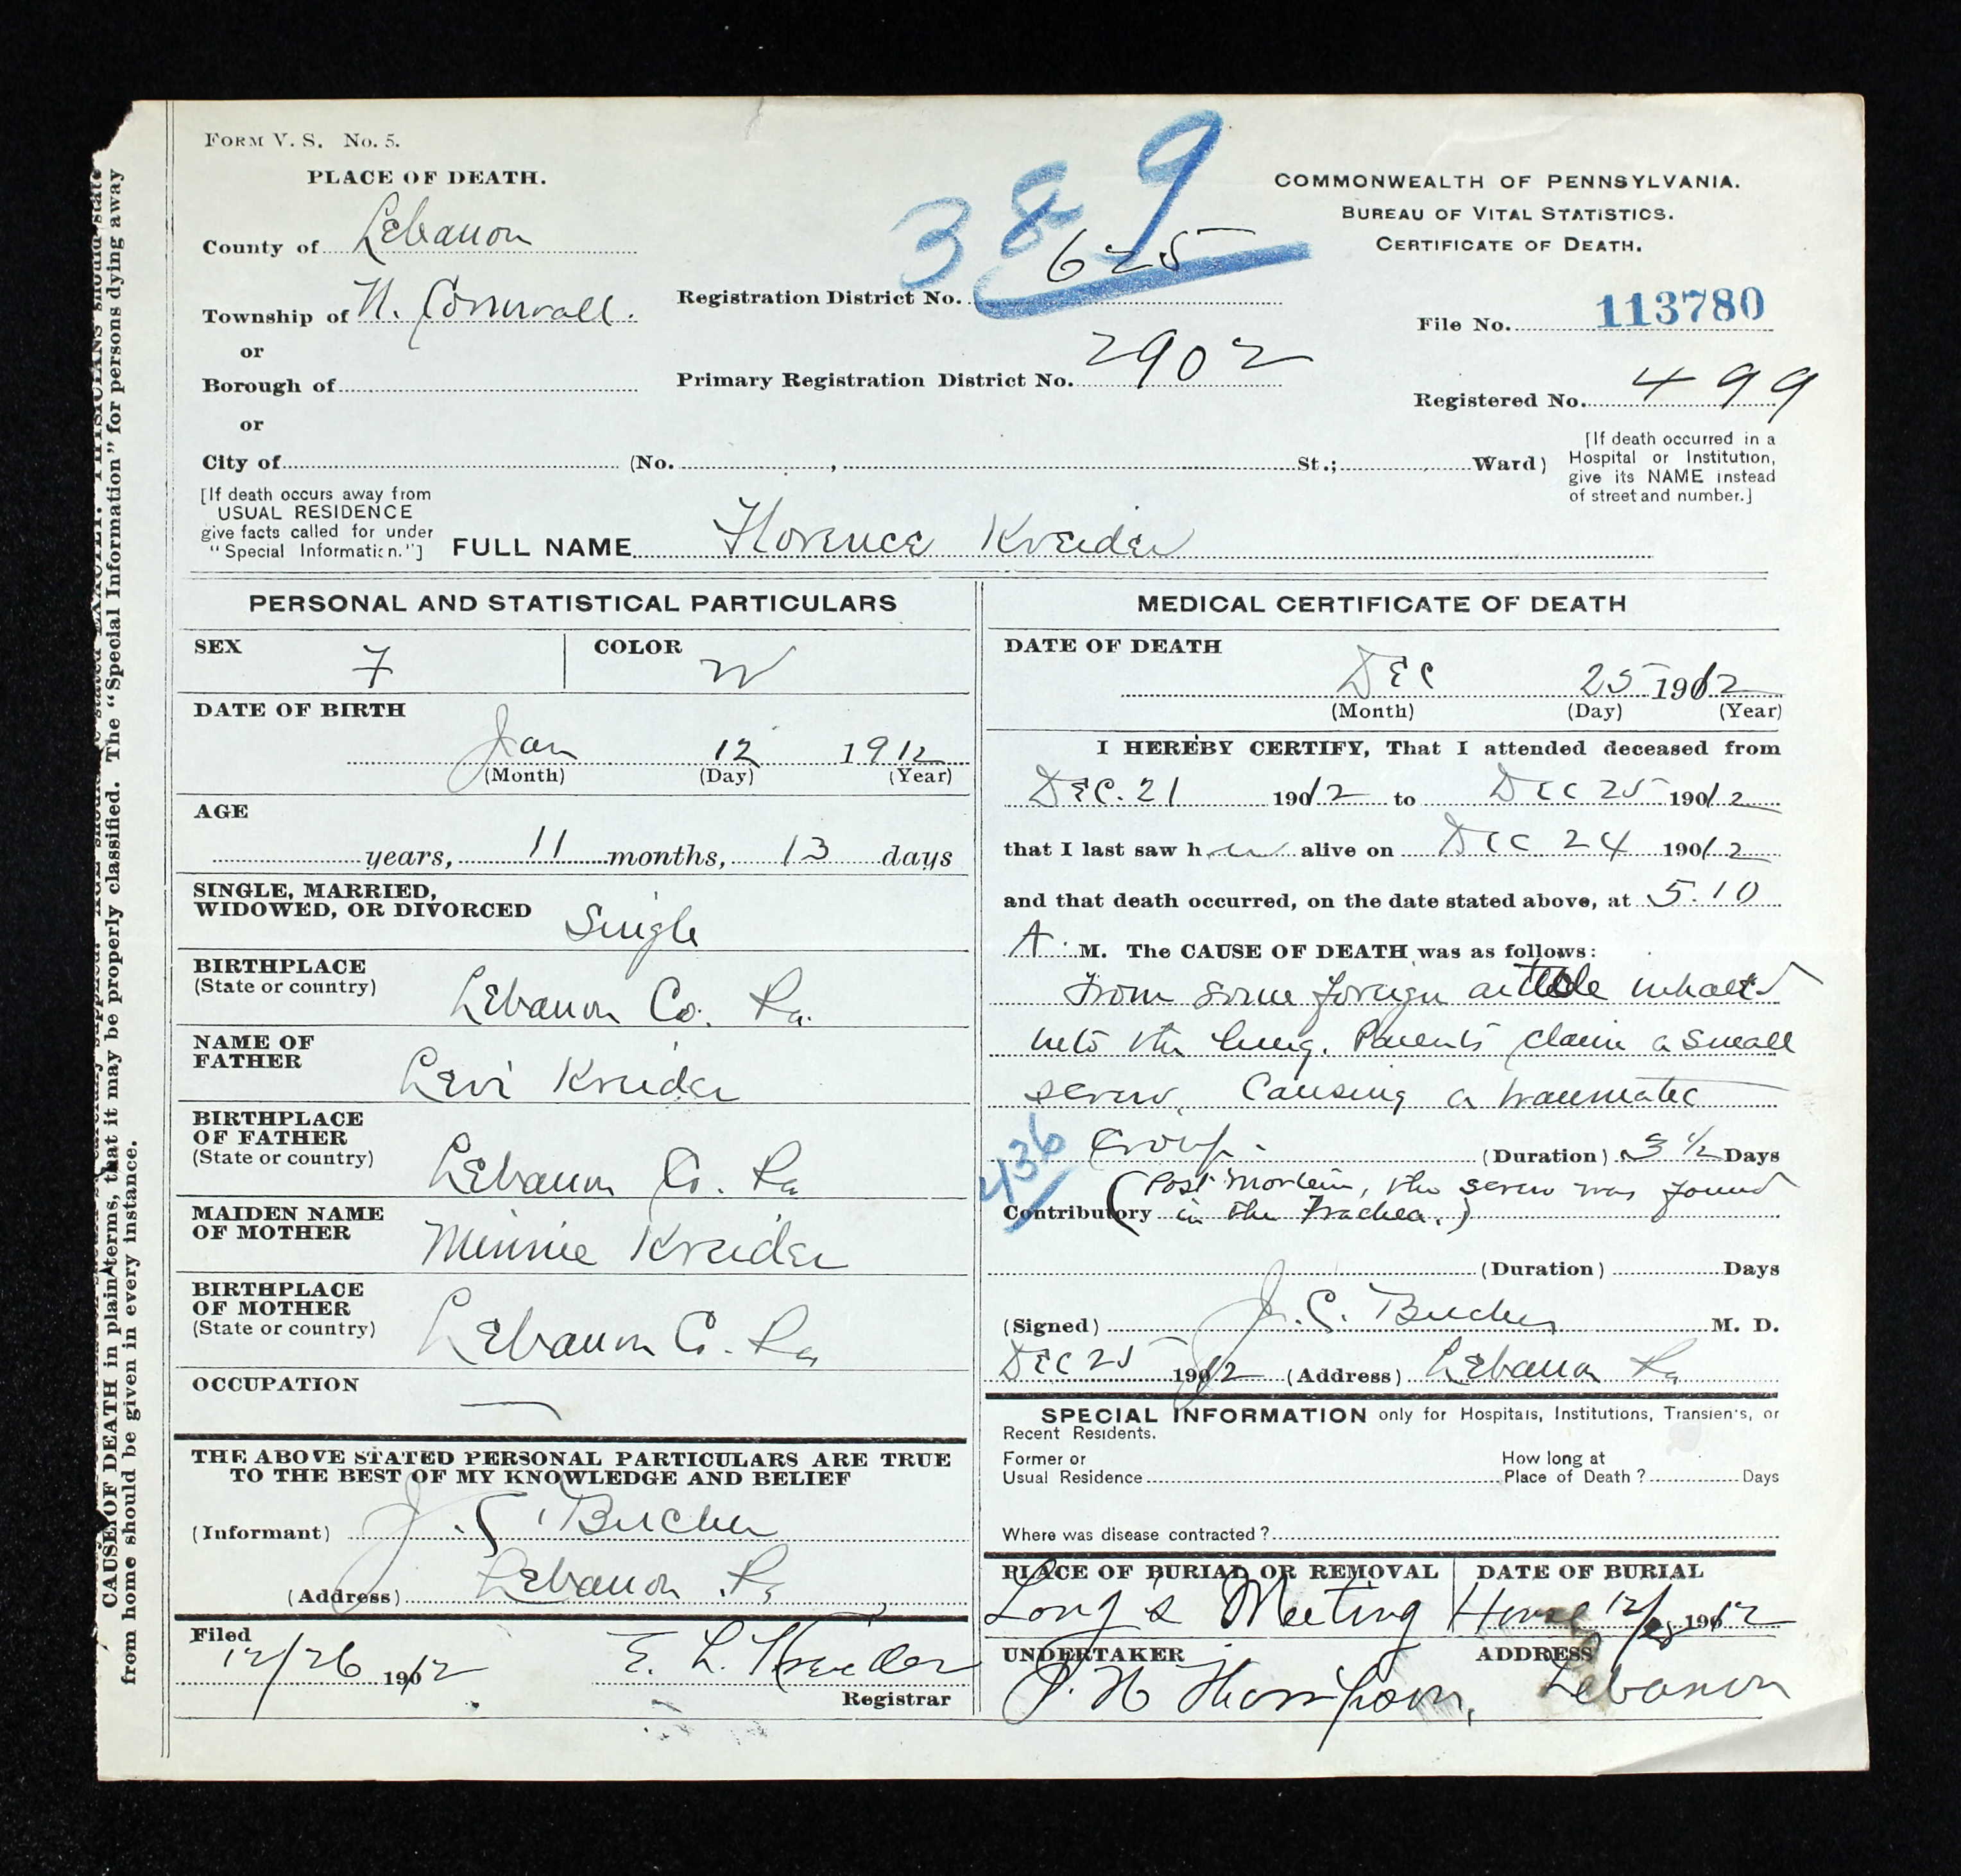 FORM V. S. No. 5.
PLACE OF DEATH.
County of Lebanon
Township of N. Cornwall.
or
Borough of
or
City of (No. , St.; Ward)
389
Registration District No. 625
Primary Registration District No. 2902
COMMONWEALTH OF PENNSYLVANIA.
BUREAU OF VITAL STATISTICS.
CERTIFICATE OF DEATH.
File No. 113780
Registered No. 499
[If death occurred in a
Hospital or Institution,
give its NAME instead
of street and number.]
[If death occurs away from
USUAL RESIDENCE
give facts called for under
"Special Information."]
FULL NAME Florence Kreider
PERSONAL AND STATISTICAL PARTICULARS
SEX F COLOR W
DATE OF BIRTH
Jan 12 1912
(Month) (Day) (Year)
AGE
years, 11 months, 13 days
SINGLE, MARRIED,
WIDOWED, OR DIVORCED Single
BIRTHPLACE
(State or country) Lebanon Co. Pa.
NAME OF
FATHER Levi Kreider
BIRTHPLACE
OF FATHER
(State or country) Lebanon Co. Pa
MAIDEN NAME
OF MOTHER Minnie Kreider
BIRTHPLACE
OF MOTHER
(State or country) Lebanon Co. Pa
OCCUPATION —
THE ABOVE STATED PERSONAL PARTICULARS ARE TRUE
TO THE BEST OF MY KNOWLEDGE AND BELIEF
(Informant) J. C. Bucher
(Address) Lebanon Pa
Filed
12/26 1912 E. L. Kreider
Registrar
MEDICAL CERTIFICATE OF DEATH
DATE OF DEATH
Dec 25 1912
(Month) (Day) (Year)
I HEREBY CERTIFY, That I attended deceased from
Dec. 21 1912 to Dec 25 1912
that I last saw her alive on Dec 24 1912
and that death occurred, on the date stated above, at 5.10
A. M. The CAUSE OF DEATH was as follows:
From some foreign article inhaled
into the lung. Parents claim a small
screw, Causing a traumatic
Croup. (Duration) 3 1/2 Days
436
(Post Mortem, the screw was found
Contributory in the Trachea.)
(Duration) Days
(Signed) J. C. Bucher M. D.
Dec 25 1912 (Address) Lebanon Pa
SPECIAL INFORMATION only for Hospitals, Institutions, Transients, or
Recent Residents.
Former or How long at
Usual Residence Place of Death? Days
Where was disease contracted?
PLACE OF BURIAL OR REMOVAL DATE OF BURIAL
Long's Meeting House 12/28 1912
UNDERTAKER ADDRESS
J. H. Thompson, Lebanon
CAUSE OF DEATH in plain terms, that it may be properly classified. The "Special Information" for persons dying away
from home should be given in every instance.